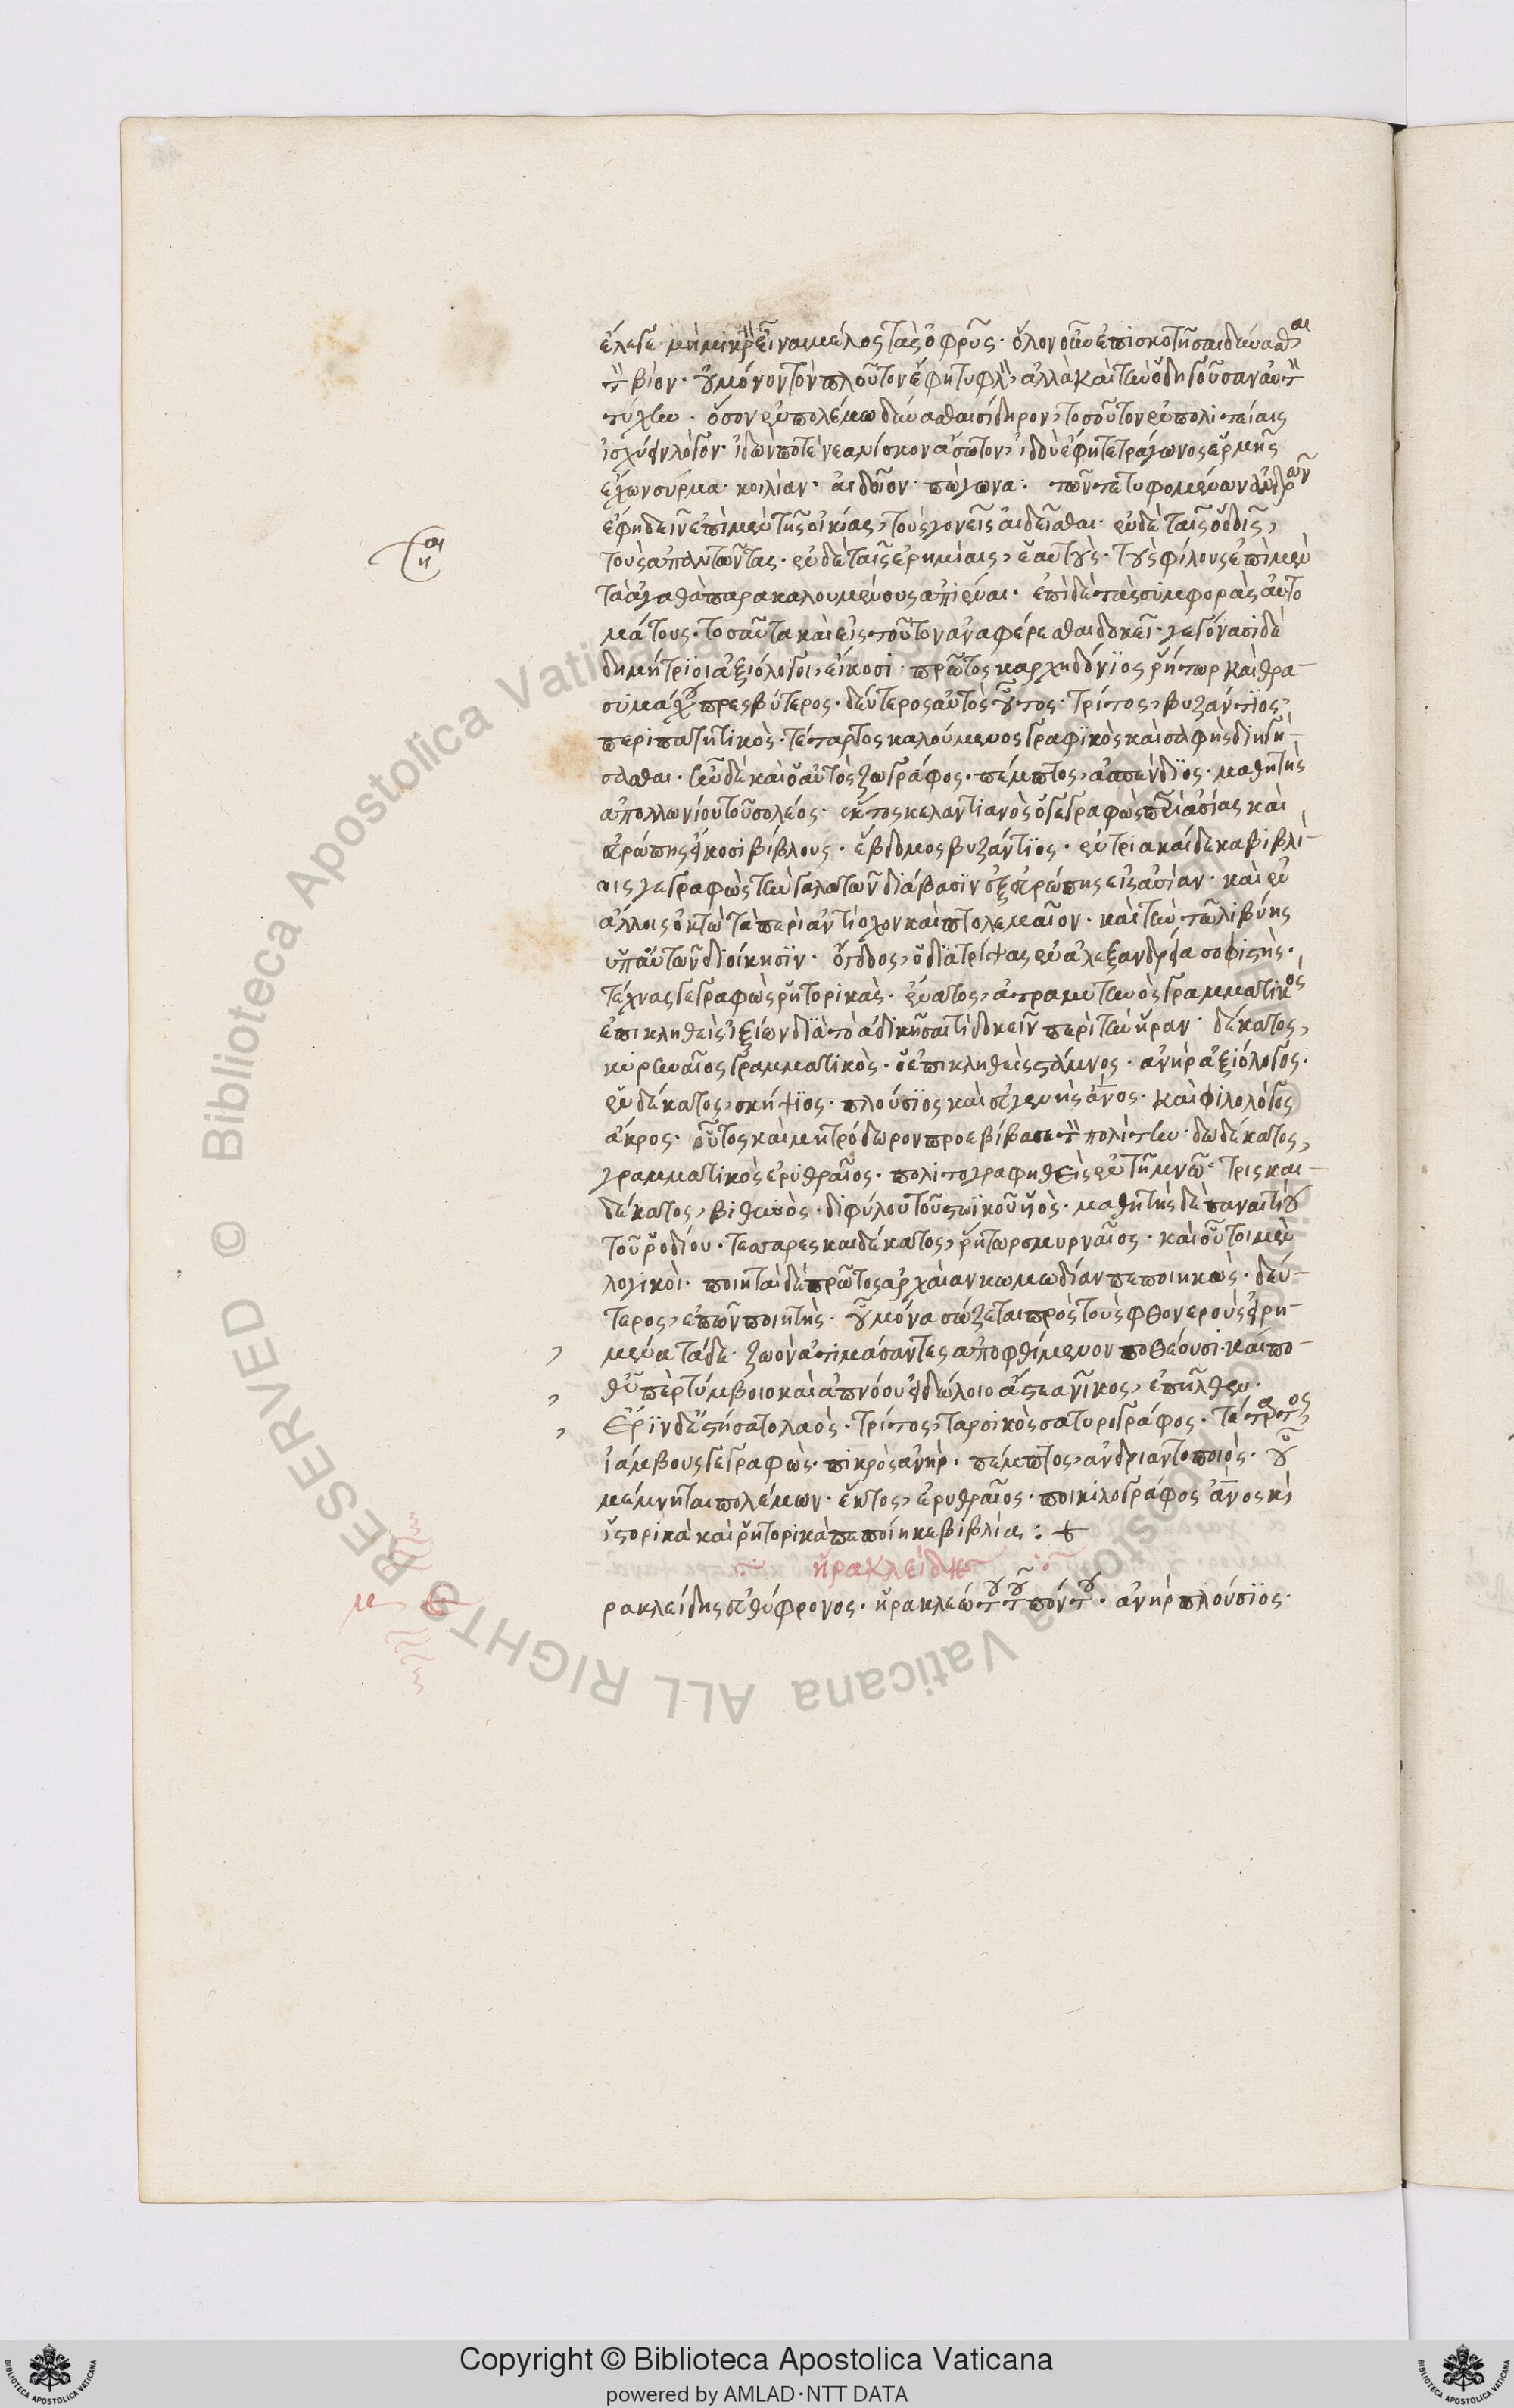 ἔλεγε μὴ μικρὸν εἶναι μέλος τὰς ὀφρῦς· ὅλον οὖν ἐπισκοτῆσαι δύνασθαι
τὸν βίον· οὐ μόνον τὸν πλοῦτον ἔφη τυφλὸν, ἀλλὰ καὶ τὴν ὁδηγοῦσαν αὐτὸν
τύχην. ὅσον ἐν πολέμω δύνασθαι σίδηρον, τοσοῦτον ἐν πολιτείαις
ἰσχύειν λόγον· ἰδών ποτε νεανίσκον ἄσωτον, ἰδοὺ ἔφη τετράγωνος ἑρμῆς
ἔχων σύρμα· κοιλίαν· αἰδοῖον· πώγωνα: τῶν τετυφομένων ἀνδρῶν
ἔφη δεῖν ἐπὶ μὲν τῆς οἰκίας, τοὺς γονεῖς αἰδεῖσθαι· ἐν δὲ ταῖς ὁδοῖς,
τοὺς ἀπαντῶντας· ἐν δὲ ταῖς ἐρημίαις, ἑαυτοὺς· τοὺς φίλους ἐπὶ μὲν
τὰ ἀγαθὰ παρακαλουμένους ἀπιέναι· ἐπὶ δὲ τὰς συμφορὰς αὐτο
μάτους· τοσαῦτα καὶ εἰς τοῦτον ἀναφέρεσθαι δοκεῖ· γεγόνασι δὲ
δημήτριοι ἀξιόλογοι, εἴκοσι· πρῶτος καρχηδόνϊος ῥήτωρ καὶ θρα-
συμάχου πρεσβύτερος· δεύτερος αὐτὸς οὗτος· τρίτος, βυζάντϊος,
περιπατητικὸς· τέταρτος καλούμενος γραφικὸς καὶ σαφὴς διηγή-
σασθαι· ἦν δὲ καὶ ὁ αὐτὸς ζωγράφος· πέμπτος, ἀσπένδϊος· μαθητὴς
ἀπολλωνίου τοῦ σολέος· ἕκτος καλαντιανὸς ὁ γεγραφὼς περὶ ἀσίας καὶ
εὐρώπης εἴκοσι βίβλους· ἕβδομος βυζάντϊος· ἐν τρισκαίδεκα βιβλί-
οις γεγραφὼς τὴν γαλατῶν διάβασϊν ἐξ εὐρώπης εἰς ἀσίαν· καὶ ἐν
ἄλλοις ὀκτὼ τὰ περὶ ἀντίοχον καὶ πτολεμαῖον· καὶ τὴν τῶν λιβύης
ὑπ' αὐτῶν διοίκησϊν· ὄγδοος, ὁ διατρίψας ἐν ἀλεξανδρεία σοφιστὴς·
τέχνας γεγραφὼς ῥητορικὰς· ἔνατος, ἀτραμυτηνὸς γραμματικὸς
ἐπικληθεὶς ἰξίων διὰ τὸ ἀδικῆσαι τι δοκεῖν περὶ τὴν ἥραν· δέκατος,
κυρηναῖος γραμματικὸς· ὁ ἐπικληθεὶς στάμνος· ἀνὴρ ἀξιόλογος·
ἑνδέκατος, σκήψϊος· πλούσϊος καὶ εὐγενὴς ἄνος· καὶ φιλολόγος
ἄκρος· οὗτος καὶ μητρόδωρον προεβίβασε τὸν πολίτην· δωδέκατος,
γραμματικὸς ἐρυθραῖος· πολιτογραφηθεὶς ἐν τῆ μνῶ· τρισκαι-
δέκατος, βιθυνὸς· διφύλου τοῦ στωϊκοῦ υἱὸς· μαθητὴς δὲ παναιτίου
τοῦ ῥοδίου· τεσσαρεσκαιδέκατος, ῥήτωρ σμυρναῖος· καὶ οὗτοι μὲν
λογικοὶ· ποιηταὶ δὲ πρῶτος ἀρχαίαν κωμωδίαν πεποιηκὼς· δεύ-
τερος, ἐπῶν ποιητὴς· οὗ μόνα σώζεται πρὸς τοὺς φθονεροὺς εἰρη-
μένα τάδε· ζωὸν ἀτιμάσαντες ἀποφθίμενον ποθέουσι· καί πο-
θ' ὑπὲρ τύμβοιο καὶ ἀπνόου εἰδώλοιο ἄστεα νῖκος, ἐπῆλθεν·
ἔρϊν δ' ἐστήσατο λαὸς· τρίτος, ταρσικὸς σατυρογράφος· τέταρτος,
ἰάμβους γεγραφὼς· πικρὸς ἀνὴρ· πέμπτος, ἀνδριαντοποιὸς· οὗ
μέμνηται πολέμων· ἕκτος, ἐρυθραῖος· ποικιλογράφος ἄνος καὶ
ἱστορικὰ καὶ ῥητορικὰ πεποίηκε βιβλία: +
ἡρακλείδης
ρακλείδης εὐθύφρονος· ἡρακλεώτου τοῦ πόντου· ἀνὴρ πλούσϊος·
Copyright © Biblioteca Apostolica Vaticana
powered by AMLAD·NTT DATA
© Biblioteca Apostolica Vaticana ALL RIGHTS RESERVED